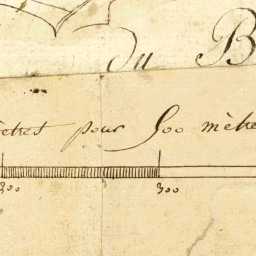 du B
ètres pour 500 mètre
200 300